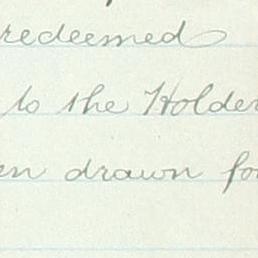 redeemed
to the Holder
en drawn for